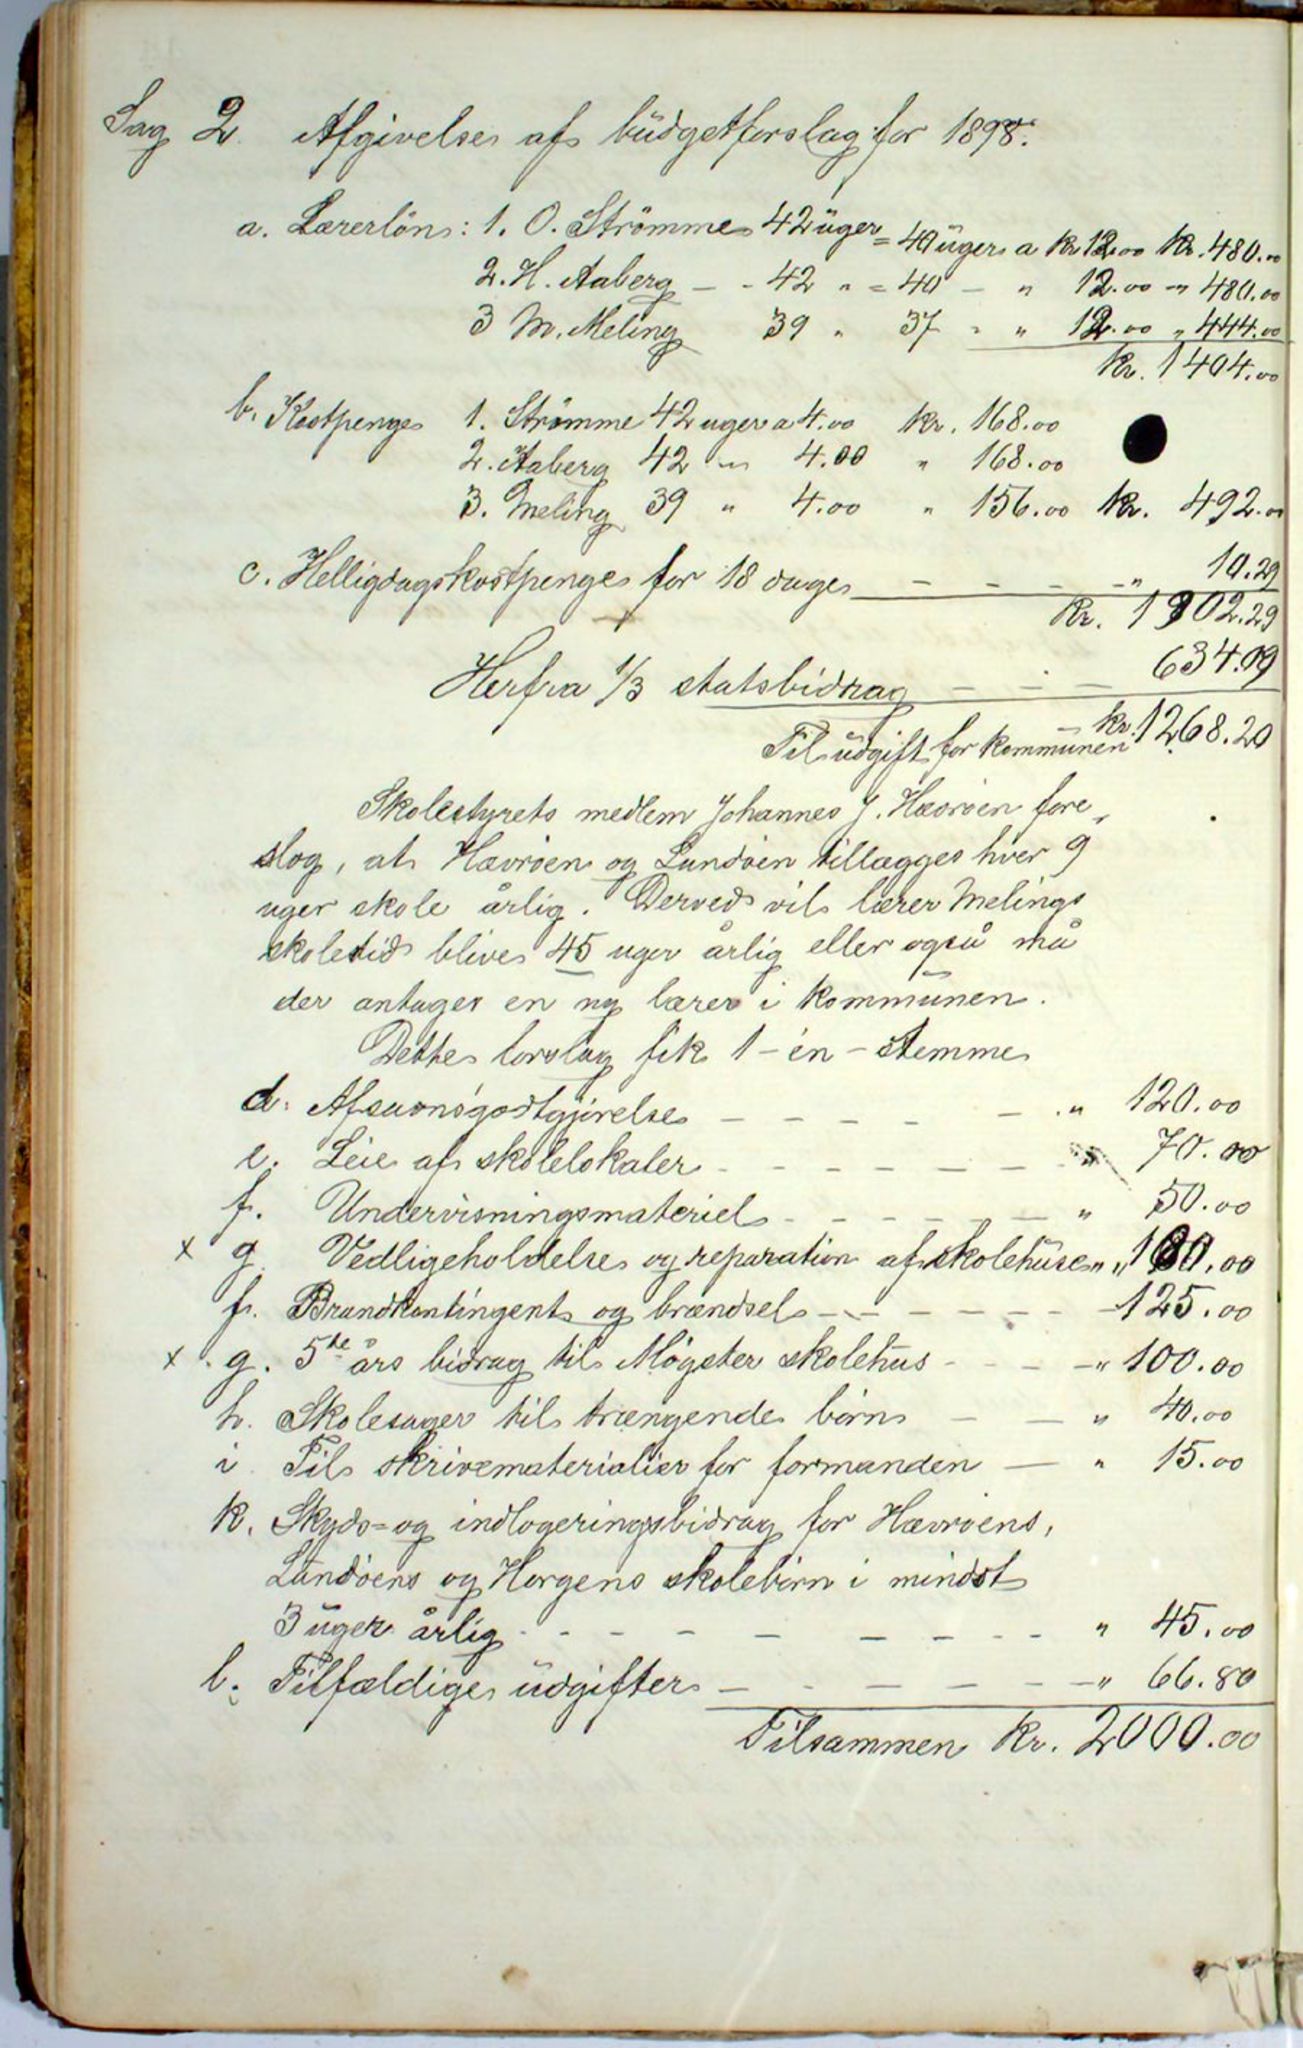 Sag 2. Afgivelse af büdgetforslag for 1898.
a. Lærerløn: 1. O. Strömme 42 üger = 40 üger a kr 12.00 kr. 480.00
2. H. Aaberg — - 42 " = 40 — " 12.00 -" 480.00
3 M. Meling 39 " 37 " " 12.00 " 444.00
kr. 1404.00
b. Kostpenge 1. Strömme 42 uger a 4.00 kr. 168.00
2. Aaberg 42 -"- 4.00 " 168.00
3. Meling 39 " 4.00 " 156.00 kr. 492.00
c. Helligdagskostpenge for 18 dage — — — -" 10.29
kr. 1902.29
Herfra 1/3 statsbidrag — - — 634.09
Til üdgift for kommünen kr. 1268.20
Skolestyrets medlem Johannes J. Hævröen fore„
slog, at Hævröen og Lundöen tillægges hver 9
uger skole årlig. Derved vil lærer Melings
skoletid blive 45 uger årlig eller også må
der antages en ny lærer i kommünen.
Dette forslag fik 1 - én - stemme
d. Afsavnsgodtgjörelse — — — — — . " 120.00
e. Leie af skolelokaler - — — — — — " 70.00
f. Undervisningsmateriel - — — — — " 50.00
x g. Vedligeholdelse og reparation af skolehüse " " 100.00
f. Brandkontingent og brændsel — - — — — — 125.00
x g. 5te års bidrag til Møgster skolehüs - - - -" 100.00
h. Skolesager til trængende børn — — " 40.00
i Til skrivematerialier for formanden — " 15.00
k. Skyds= og indlogeringsbidrag for Hævröens,
Lündöens og Horgens skolebörn i mindst
3 üger årlig - - - — — — — — - " 45.00
l. Tilfældige üdgifter — - — — - —" 66.80
Tilsammen kr. 2000.00